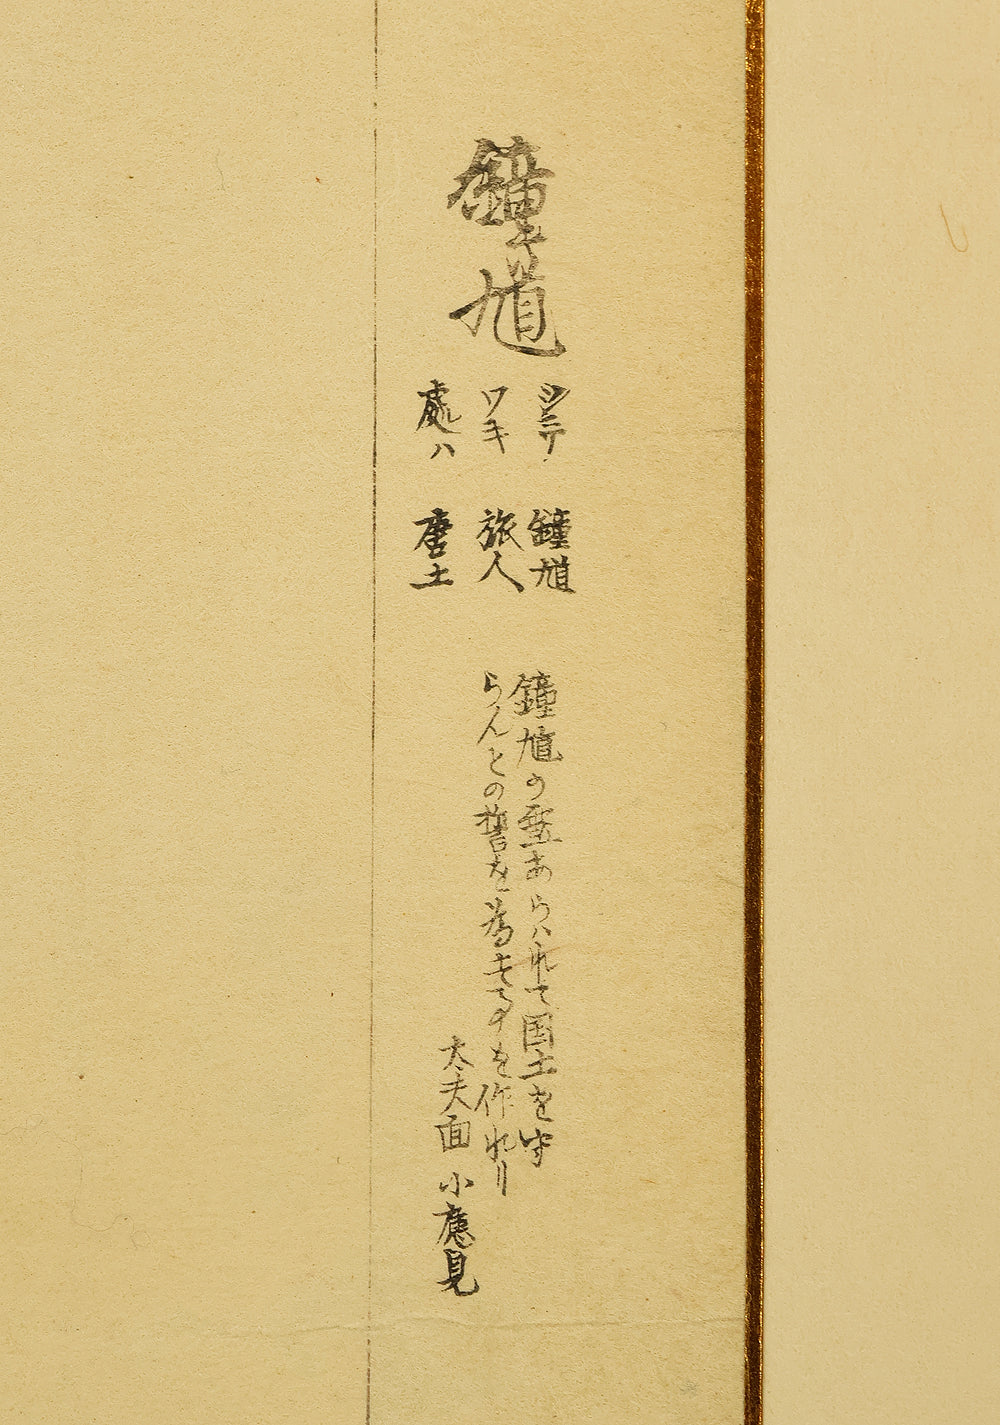 鐘馗
シテ 鐘馗
ワキ 旅人
處ハ 唐土
鐘馗の霊あらハれて国土を守
らんとの誓を為す事を作れり
太夫面 小癋見